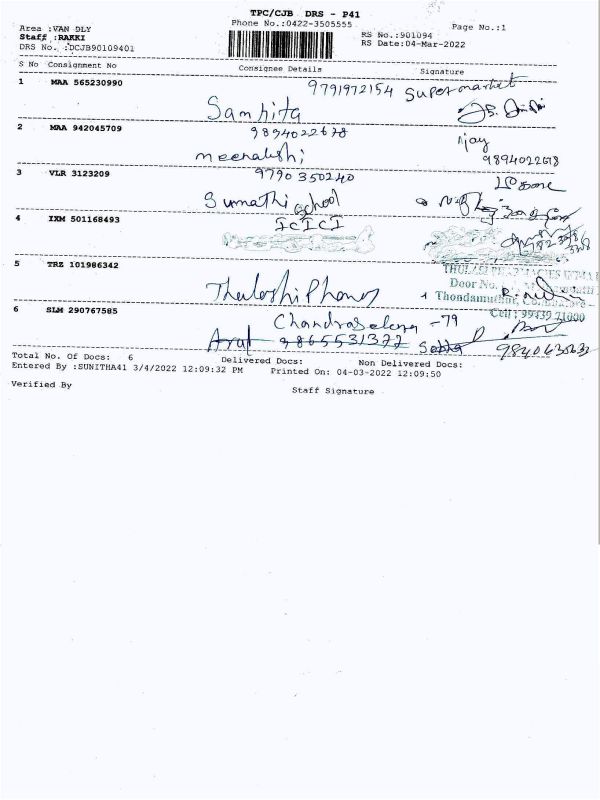 TPC/CJB DRS - P41
Phone No.:0422-3505555
Page No.:1
Area :VAN DLY
Staff :RAKKI
DRS No. :DCJB90109401
RS No.:901094
RS Date:04-Mar-2022
S No Consignment No Consignee Details Signature
1 MAA 565230990 9791972154 Super market
Samhita
2 MAA 942045709 9894022678
meenakshi
9894022678
3 VLR 3123209 9790350240
Sumathi School
4 IXM 501168493 ICICI
5 TRZ 101986342
THULASI PHARMACIES
Door No.
Thondamuthur,
Cell : 99439 71000
6 SLM 290767585
Chandrasekar -79
Arul 9865531377
Total No. Of Docs: 6 Delivered Docs: Non Delivered Docs:
Entered By :SUNITHA41 3/4/2022 12:09:32 PM Printed On: 04-03-2022 12:09:50
Verified By
Staff Signature